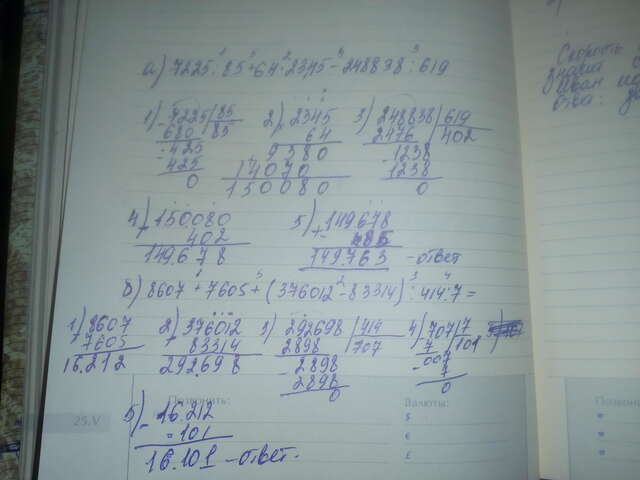 а) 7225 : 85 + 64 · 2345 - 248838 : 619
1) 7225 | 85
680 | 85
425
425
0
2) 2345
64
9380
14070
150080
3) 248838 | 619
2476 | 402
1238
1238
0
4) 150080
402
149.678
5) 149678
85
149.763 - ответ
б) 8607 + 7605 + (376012 - 83314) : 414 : 7 =
1) 8607
7605
16.212
2) 376012
83314
292.698
3) 292698 | 414
2898 | 707
2898
2898
0
4) 707 | 7
7 | 101
007
7
0
5) 16.212
101
16.101 - ответ.
25.V
Позвонить:
Валюты:
$
€
£
Скорость